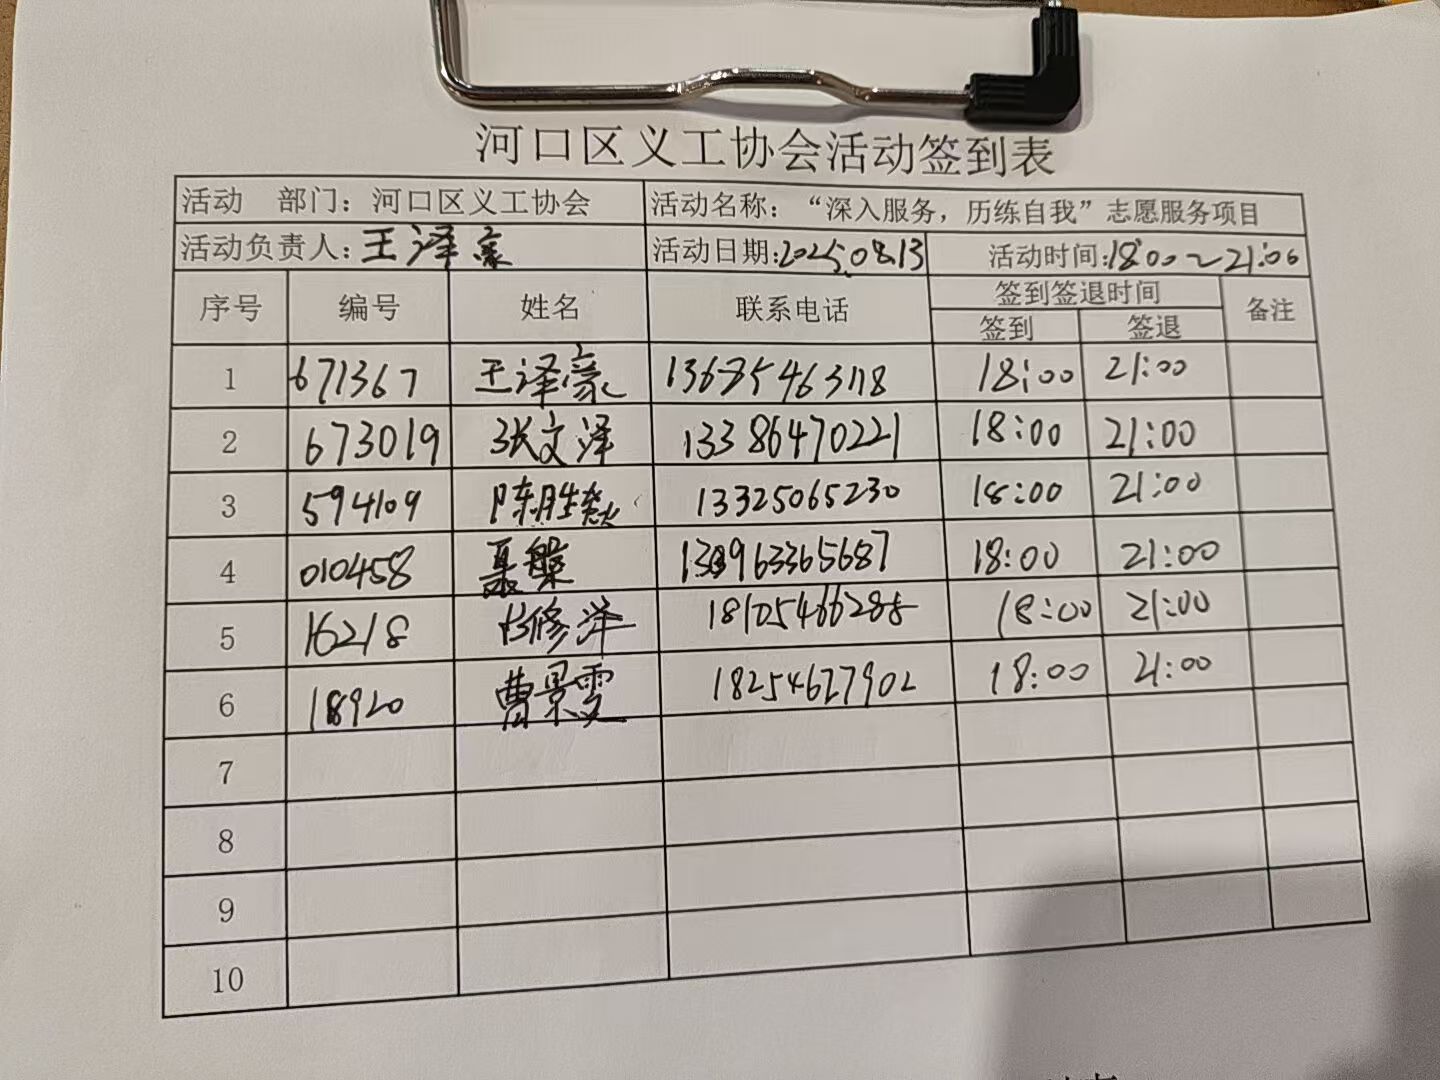 河口区义工协会活动签到表
活动 部门：河口区义工协会 活动名称：“深入服务，历练自我”志愿服务项目
活动负责人：王泽豪 活动日期:2025.08.13 活动时间:18:00～21:00
序号 编号 姓名 联系电话 签到签退时间 备注
签到 签退
1 671367 王泽豪 18:00 21:00
2 673019 张文泽 13386470221 18:00 21:00
3 594109 陈胜 13325065230 18:00 21:00
4 010458 聂盤 18:00 21:00
5 16218 修泽 18105466288 18:00 21:00
6 18920 曹景雯 18254627902 18:00 21:00
7
8
9
10